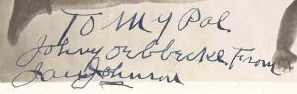 To My Pal
Johny Oebbecke From
Jack Johnson